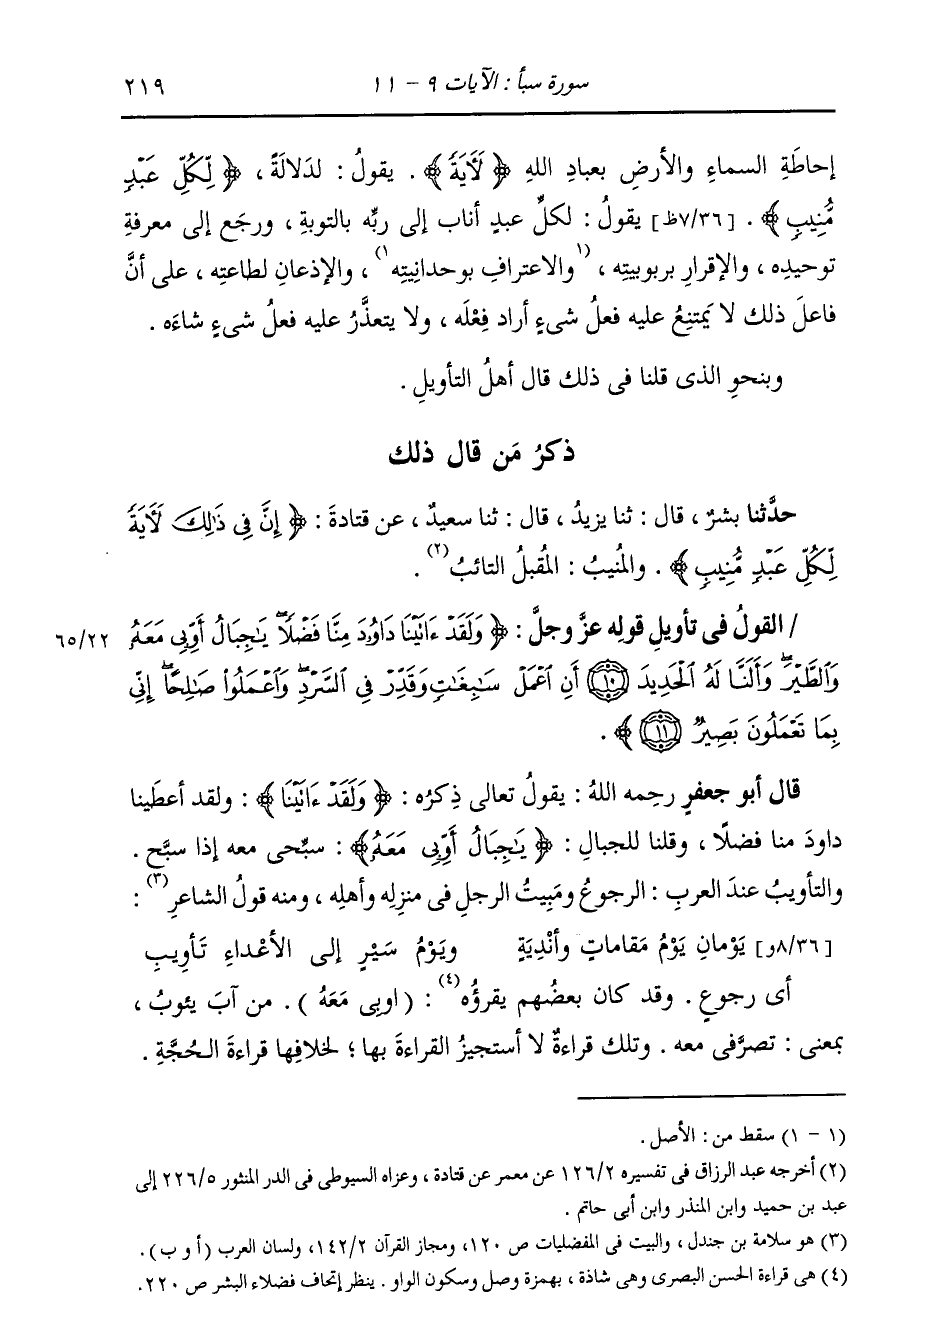 سورة سبأ : الآيات ٩ - ١١
٢١٩
إحاطَةِ السماءِ والأرضِ بعبادِ اللهِ ﴿ لَأَيَةً ﴾ . يقولُ : لدَلالةً ، ﴿ لِّكُلِّ عَبْدٍ
مُّنِيبٍ ﴾ . [٧/٣٦ظ] يقولُ : لكلِّ عبدٍ أناب إلى ربِّه بالتوبةِ ، ورجَع إلى معرفةِ
توحيدِه ، والإقرارِ بربوبيتِه ، (١ والاعترافِ بوحدانِيتِه ١) ، والإذعانِ لطاعتِه ، على أنَّ
فاعلَ ذلك لا يَمتنِعُ عليه فعلُ شىءٍ أراد فِعْلَه ، ولا يتعذَّرُ عليه فعلُ شىءٍ شاءَه .
وبنحوِ الذى قلنا فى ذلك قال أهلُ التأويلِ .
ذكرُ مَن قال ذلك
حدَّثنا بشرٌ ، قال : ثنا يزيدُ ، قال : ثنا سعيدٌ ، عن قتادةَ : ﴿ إِنَّ فِى ذَٰلِكَ لَأَيَةً
لِّكُلِّ عَبْدٍ مُّنِيبٍ ﴾ . والمُنيبُ : المُقبلُ التائبُ (٢) .
/ القولُ فى تأويلِ قولِه عزَّ وجلَّ : ﴿ وَلَقَدْ ءَاتَيْنَا دَاوُۥدَ مِنَّا فَضْلًا يَٰجِبَالُ أَوِّبِى مَعَهُۥ
٦٥/٢٢
وَٱلطَّيْرَ وَأَلَنَّا لَهُ ٱلْحَدِيدَ ١٠ أَنِ ٱعْمَلْ سَٰبِغَٰتٍ وَقَدِّرْ فِى ٱلسَّرْدِ وَٱعْمَلُوا۟ صَٰلِحًا إِنِّى
بِمَا تَعْمَلُونَ بَصِيرٌ ١١ ﴾ .
قال أبو جعفرٍ رحِمه اللهُ : يقولُ تعالى ذِكرُه : ﴿ وَلَقَدْ ءَاتَيْنَا ﴾ : ولقد أعطَينا
داودَ منا فضلًا ، وقلنا للجبالِ : ﴿ يَٰجِبَالُ أَوِّبِى مَعَهُۥ ﴾ : سبِّحى معه إذا سبَّح .
والتأويبُ عندَ العربِ : الرجوعُ ومَبِيتُ الرجلِ فى منزلِه وأهلِه ، ومنه قولُ الشاعرِ (٣) :
[٨/٣٦و] يَوْمانِ يَوْمُ مَقاماتٍ وأنْدِيَةٍ ويَوْمُ سَيْرٍ إلى الأعْداءِ تَأوِيبِ
أى رجوعٍ . وقد كان بعضُهم يقرؤُه (٤) : ( اوبى مَعَهُ ) . من آبَ يئوبُ ،
بمعنى : تصرَّفى معه . وتلك قراءةٌ لا أستجيزُ القراءةَ بها ؛ لخلافِها قراءةَ الحُجَّةِ .
(١ - ١) سقط من : الأصل .
(٢) أخرجه عبد الرزاق فى تفسيره ١٢٦/٢ عن معمر عن قتادة ، وعزاه السيوطى فى الدر المنثور ٢٢٦/٥ إلى
عبد بن حميد وابن المنذر وابن أبى حاتم .
(٣) هو سلامة بن جندل ، والبيت فى المفضليات ص ١٢٠، ومجاز القرآن ١٤٢/٢، ولسان العرب ( أ و ب ) .
(٤) هى قراءة الحسن البصرى وهى شاذة ، بهمزة وصل وسكون الواو . ينظر إتحاف فضلاء البشر ص ٢٢٠ .